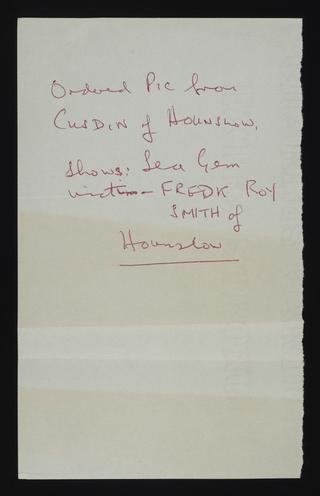 Ordered Pic from
CUSDIN of HOUNSLOW.
Shows: Sea Gem
victim - FREDK ROY
SMITH of
Hounslow